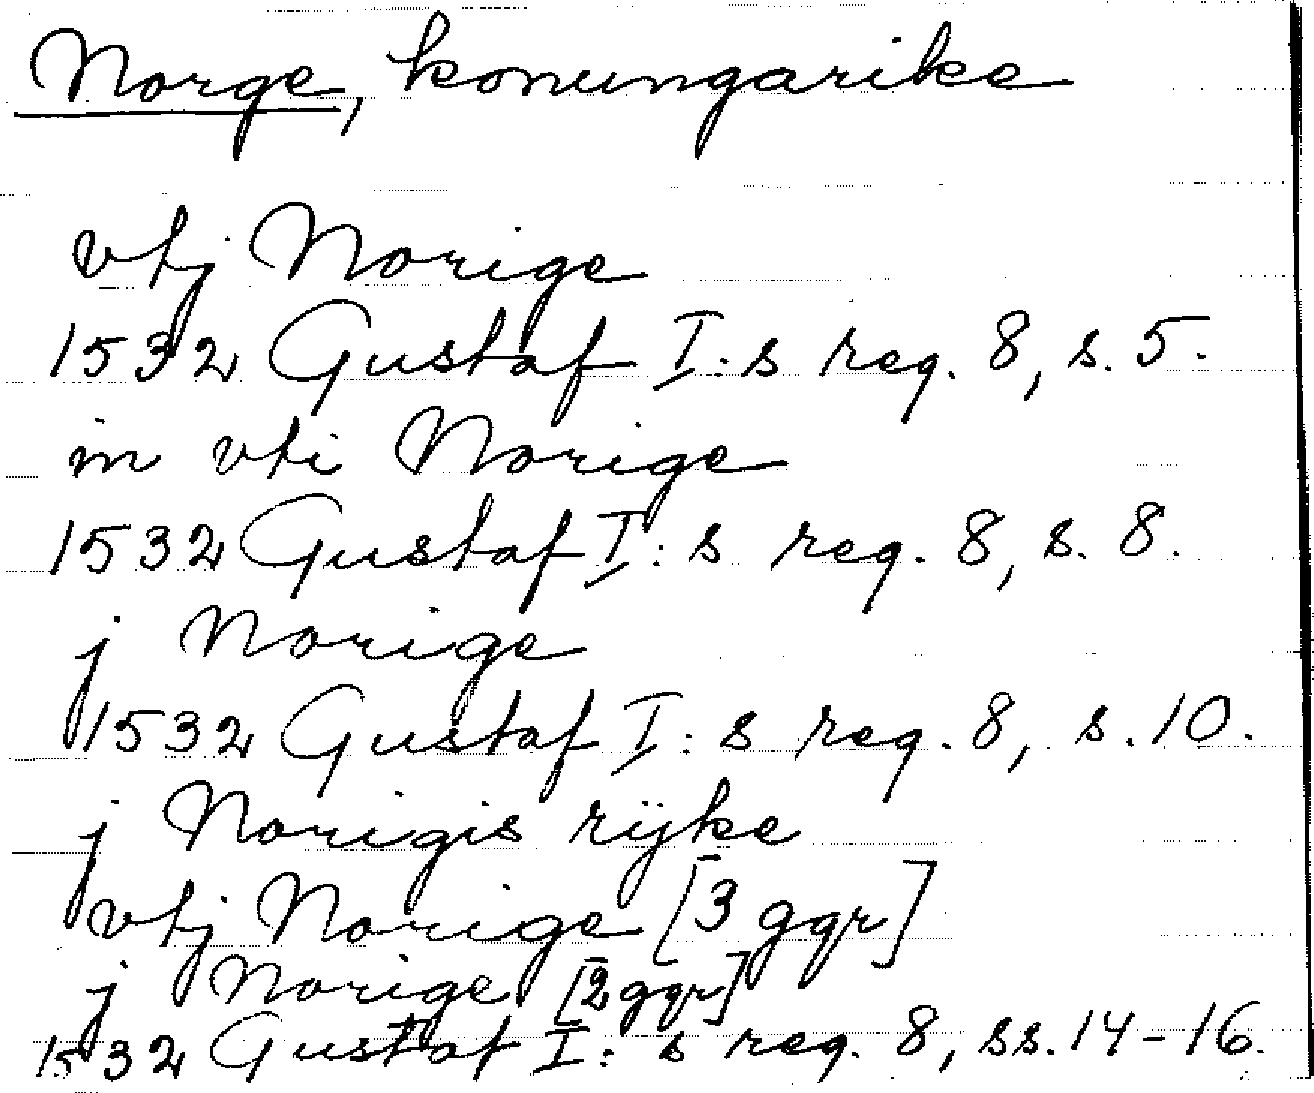 Norge, konungarike
vtj Norige
1532 Gustaf I:s reg. 8, s. 5.
in vti Norige
1532 Gustaf I:s reg. 8, s. 8.
j Norige
1532 Gustaf I:s reg. 8, s. 10.
j Norigis rijke
vtj Norige [3 ggr]
j Norige [2 ggr]
1532 Gustaf I:s reg. 8, ss. 14-16.